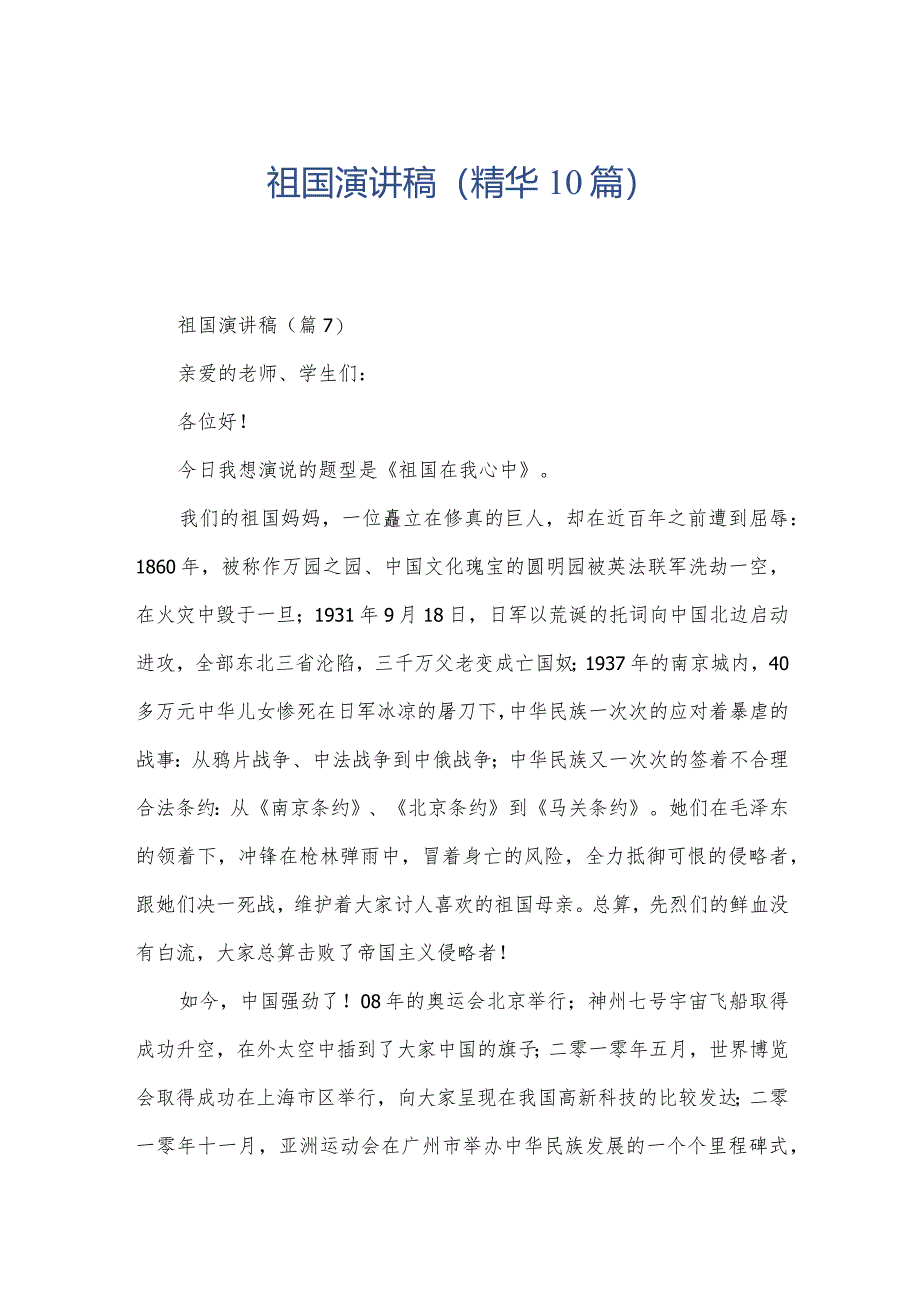 祖国演讲稿（精华10篇）
祖国演讲稿（篇7）
亲爱的老师、学生们：
各位好！
今日我想演说的题型是《祖国在我心中》。
我们的祖国妈妈，一位矗立在修真的巨人，却在近百年之前遭到屈辱：
1860年，被称作万园之园、中国文化瑰宝的圆明园被英法联军洗劫一空，
在火灾中毁于一旦；1931年9月18日，日军以荒诞的托词向中国北边启动
进攻，全部东北三省沦陷，三千万父老变成亡国奴；1937年的南京城内，40
多万元中华儿女惨死在日军冰凉的屠刀下，中华民族一次次的应对着暴虐的
战事：从鸦片战争、中法战争到中俄战争；中华民族又一次次的签着不合理
合法条约：从《南京条约》、《北京条约》到《马关条约》。她们在毛泽东
的领着下，冲锋在枪林弹雨中，冒着身亡的风险，全力抵御可恨的侵略者，
跟她们决一死战，维护着大家讨人喜欢的祖国母亲。总算，先烈们的鲜血没
有白流，大家总算击败了帝国主义侵略者！
如今，中国强劲了！08年的奥运会北京举行；神州七号宇宙飞船取得
成功升空，在外太空中插到了大家中国的旗子；二零一零年五月，世界博览
会取得成功在上海市区举行，向大家呈现在我国高新科技的比较发达；二零
一零年十一月，亚洲运动会在广州市举办中华民族发展的一个个里程碑式，